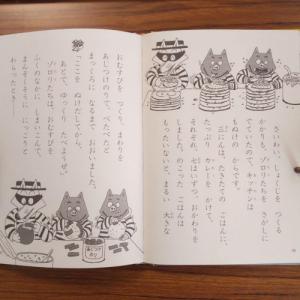 さいわい、しょくじを つくる
かかりも、ゾロリたちを さがしに
でていたので、キッチンは
もぬけの からです。
三にんは、たきたての ごはんに、
たっぷり カレーを かけて、
それぞれ、七はいずつ おかわりを
しました。のこった ごはんは
もったいないと、まるい 大きな
おむすびを つくり、まわりを
あじつけのりで、べたべたと
まっくろに なるまで おおいました。
「ここを ぬけだしてから、
あとで、ゆっくり たべようぜ。」
ゾロリたちは、おむすびを
ふくのなかに しまいこんで、
まんぞくそうに にっこりと
わらったとき！
あじつけ
のり